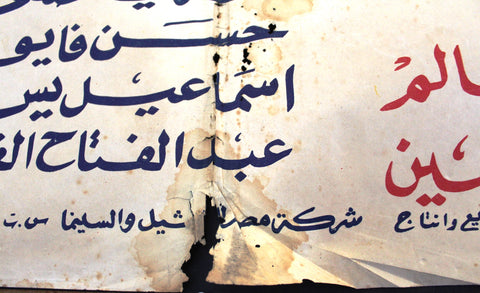 حسن فايو
عالم
اسماعيل يس
عبد الفتاح الق
ين
يع وانتاج شركة مصر ثيل والسينما س.ت